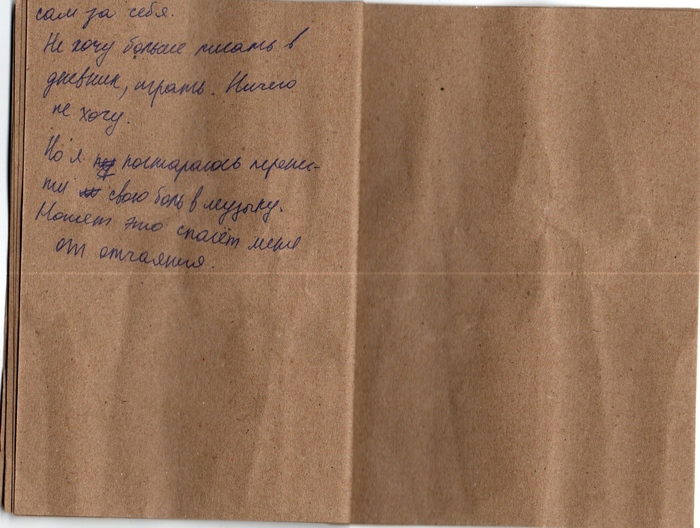 сам за себя.
Не хочу больше писать в
дневник, играть. Ничего
не хочу.
Но я постараюсь перенес-
ти свою боль в музыку.
Может это спасёт меня
от отчаяния.